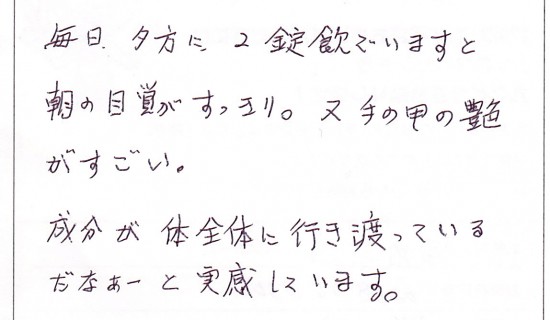 毎日 夕方に 2錠飲でいますと
朝の目覚がすっきり。又手の甲の艶
がすごい。
成分が体全体に行き渡っている
だなぁーと実感しています。